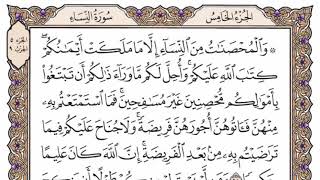 الجزء الخامس
سورة النساء
الجزء ٥
الحزب ٩
۞ وَٱلْمُحْصَنَٰتُ مِنَ ٱلنِّسَآءِ إِلَّا مَا مَلَكَتْ أَيْمَٰنُكُمْ
كِتَٰبَ ٱللَّهِ عَلَيْكُمْ وَأُحِلَّ لَكُم مَّا وَرَآءَ ذَٰلِكُمْ أَن تَبْتَغُوا۟
بِأَمْوَٰلِكُم مُّحْصِنِينَ غَيْرَ مُسَٰفِحِينَ فَمَا ٱسْتَمْتَعْتُم بِهِۦ
مِنْهُنَّ فَـَٔاتُوهُنَّ أُجُورَهُنَّ فَرِيضَةً وَلَا جُنَاحَ عَلَيْكُمْ فِيمَا
تَرَٰضَيْتُم بِهِۦ مِنۢ بَعْدِ ٱلْفَرِيضَةِ إِنَّ ٱللَّهَ كَانَ عَلِيمًا